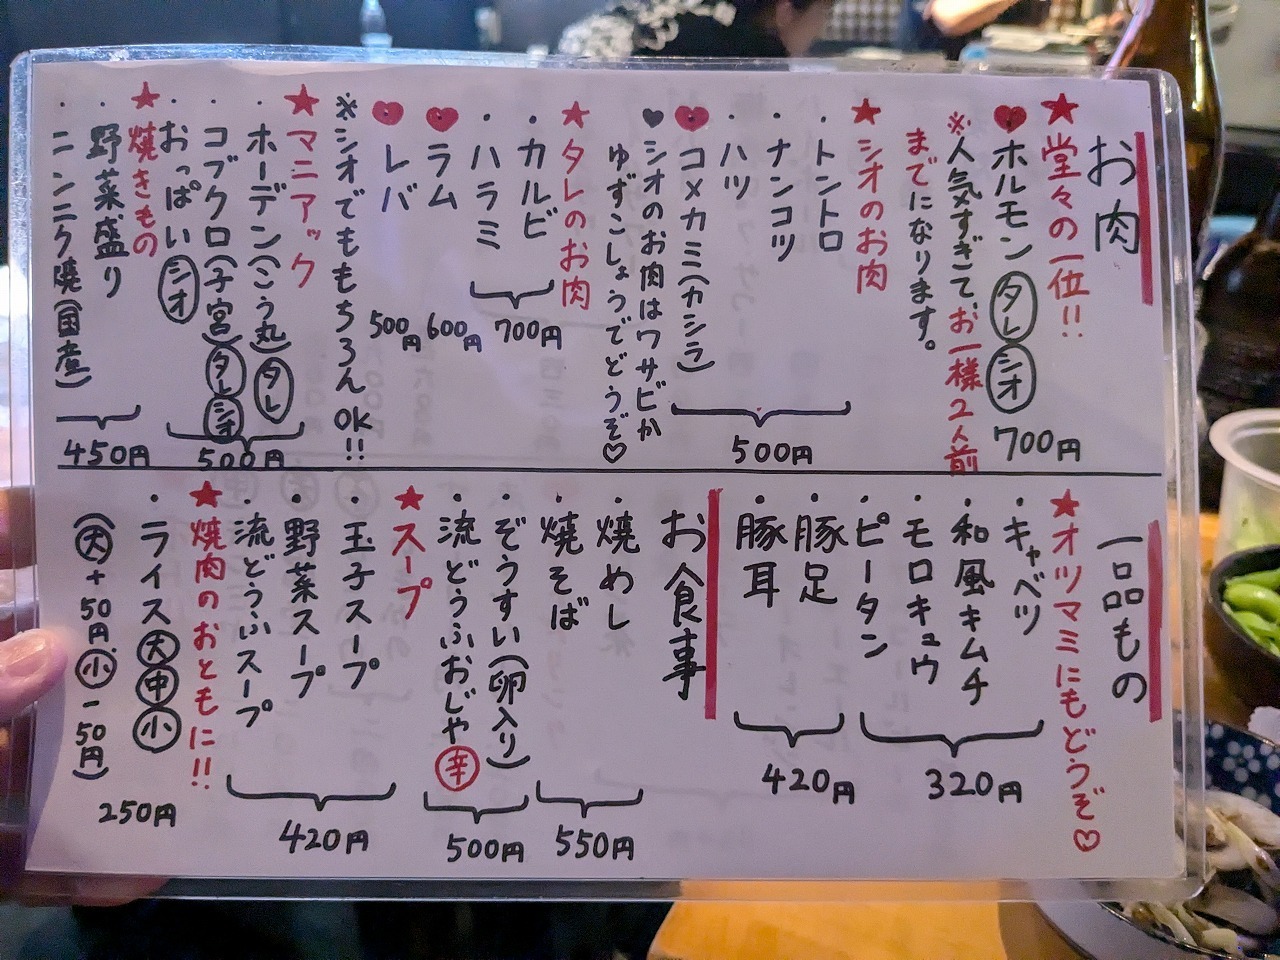 お肉
★堂々の一位!!
ホルモン タレ シオ
700円
※人気すぎて、お一様2人前
までになります。
★シオのお肉
・トントロ
・ナンコツ
・ハツ
コメカミ(カシラ)
500円
シオのお肉はワサビか
ゆずこしょうでどうぞ♡
★タレのお肉
・カルビ
・ハラミ
700円
ラム
600円
レバ
500円
※シオでももちろんOK!!
★マニアック
・ホーデン(こう丸) タレ
・コブクロ(子宮) タレ シオ
・おっぱい シオ
500円
★焼きもの
・野菜盛り
・ニンニク焼(国産)
450円
一品もの
★オツマミにもどうぞ♡
・キャベツ
・和風キムチ
・モロキュウ
・ピータン
320円
・豚足
・豚耳
420円
お食事
・焼めし
・焼そば
550円
・ぞうすい(卵入り)
・流どうふおじや 辛
500円
★スープ
・玉子スープ
・野菜スープ
・流どうふスープ
420円
★焼肉のおともに!!
・ライス 大 中 小
(大+50円、小-50円)
250円